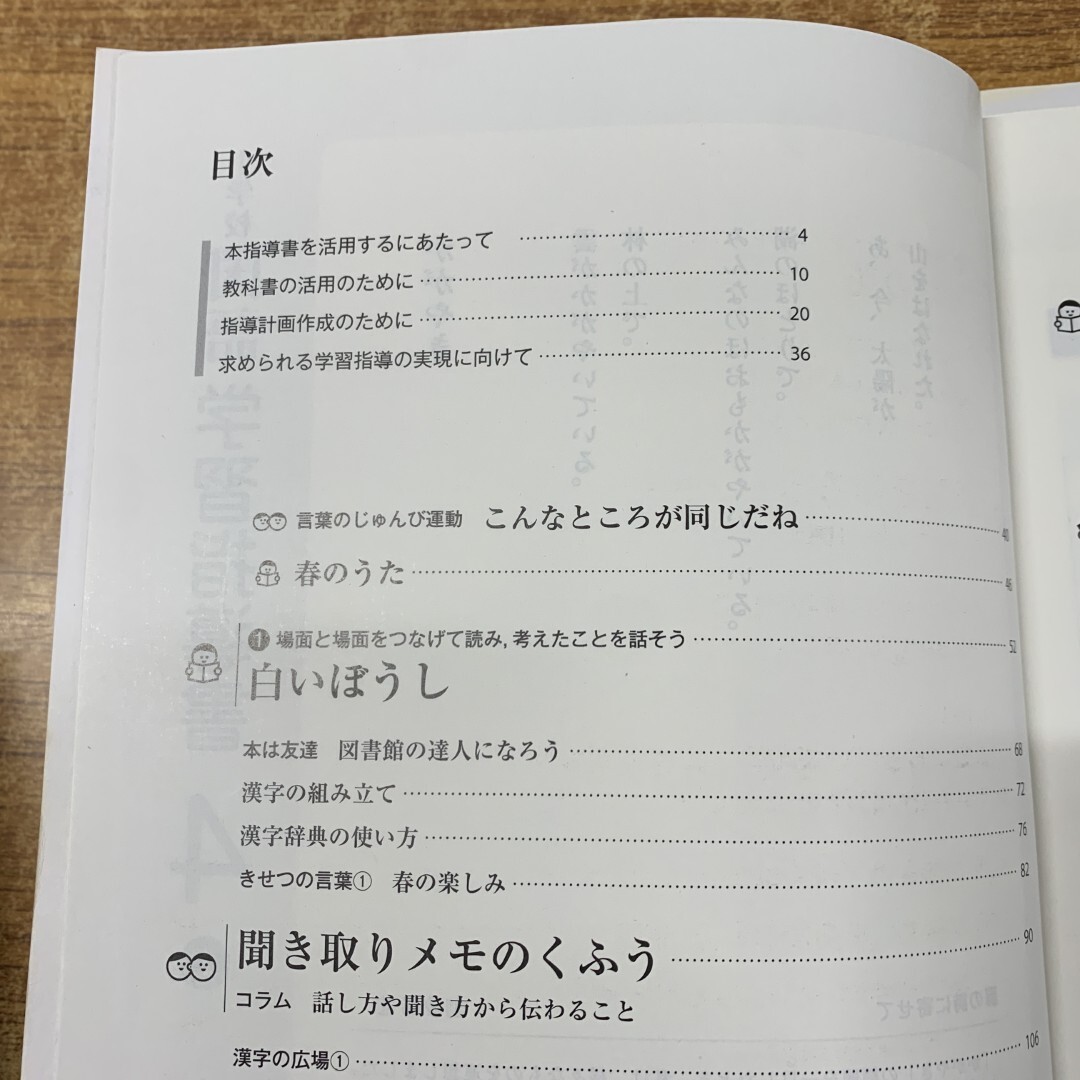 目次
本指導書を活用するにあたって 4
教科書の活用のために 10
指導計画作成のために 20
求められる学習指導の実現に向けて 36
言葉のじゅんび運動 こんなところが同じだね 40
春のうた 46
1 場面と場面をつなげて読み,考えたことを話そう 52
白いぼうし
本は友達 図書館の達人になろう 68
漢字の組み立て 72
漢字辞典の使い方 76
きせつの言葉① 春の楽しみ 82
聞き取りメモのくふう 90
コラム 話し方や聞き方から伝わること
漢字の広場① 106